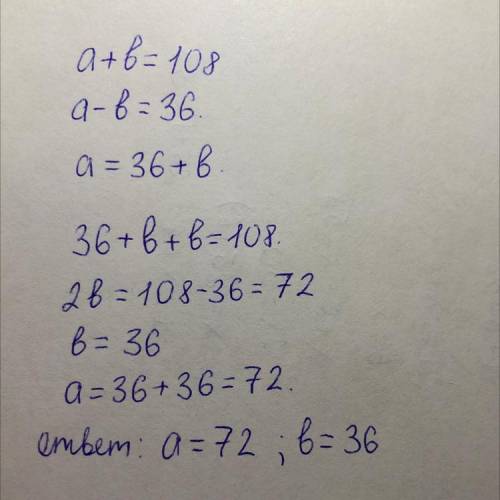 a+b=108
a-b=36.
a=36+b.
36+b+b=108.
2b=108-36=72
b=36
a=36+36=72.
ответ: a=72 ; b=36